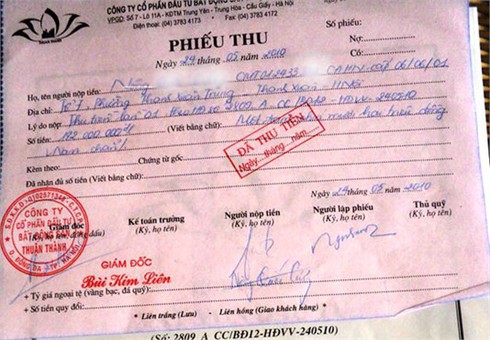 CÔNG TY CỔ PHẦN ĐẦU TƯ BẤT ĐỘNG
VPGD: Số 7 - Lô 11A - KĐTM Trung Yên - Trung Hòa - Cầu Giấy - Hà Nội
Điện thoại: (04) 3783 4173 - Fax: (04) 3783 4172
Số phiếu:
PHIẾU THU
Nợ:
Ngày 24 tháng 05 năm 2010
Có:
Họ, tên người nộp tiền: CMT012933 CAHN cấp 06/06/01
Địa chỉ: Phường Thanh Xuân Trung - Thanh Xuân - HNội
Lý do nộp: Thu tiền lần 01 theo HĐ số 2809.A-CC/BĐ12-HĐVV-240510
Số tiền: 122.000.000đ (Viết bằng chữ): Một trăm hai mươi hai triệu đồng
chẵn
ĐÃ THU TIỀN
Ngày tháng năm
Kèm theo: Chứng từ gốc
Đã nhận đủ số tiền (Viết bằng chữ):
Ngày 24 tháng 05 năm 2010
Giám đốc
(Ký, họ tên, đóng dấu)
Kế toán trưởng
(Ký, họ tên)
Người nộp tiền
(Ký, họ tên)
Người lập phiếu
(Ký, họ tên)
Thủ quỹ
(Ký, họ tên)
CÔNG TY
CỔ PHẦN ĐẦU TƯ
BẤT ĐỘNG
THUẬN THÀNH
GIÁM ĐỐC
Bùi Kim Liên
+ Tỷ giá ngoại tệ (vàng bạc, đá quý):
+ Số tiền quy đổi:
* Liên trắng (Lưu)
- Liên hồng (Giao khách hàng) *
(Số: 2809_A_CC/BĐ12-HĐVV-240510)